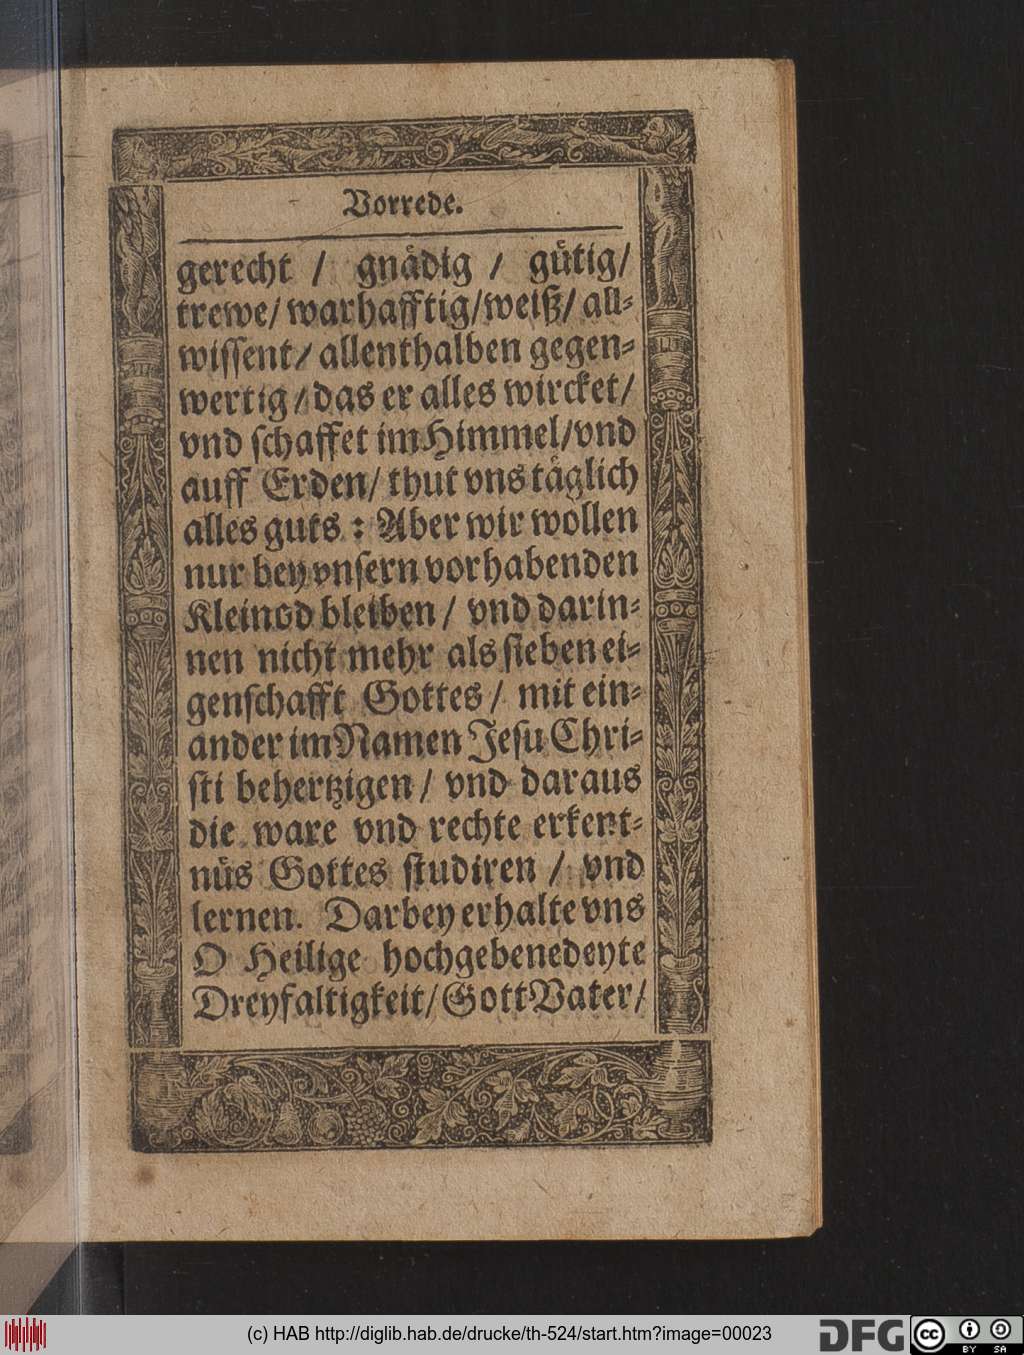 Vorrede.
gerecht / gnädig / gütig/
trewe/ warhafftig/weiß/ all-
wissent/ allenthalben gegen-
wertig/das er alles wircket/
vnd schaffet im Himmel/vnd
auff Erden/ thut vns täglich
alles guts : Aber wir wöllen
nur bey vnsern vorhabenden
Kleinod bleiben/ vnd darin-
nen nicht mehr als sieben ei-
genschafft Gottes/ mit ein-
ander im Namen Jesu Chri-
sti behertzigen/ vnd daraus
die ware vnd rechte erkent-
nüs Gottes studiren / vnd
lernen. Darbey erhalte vns
O Heilige hochgebenedeyte
Dreyfaltigkeit/Gott Vater/
(c) HAB http://diglib.hab.de/drucke/th-524/start.htm?image=00023
DFG
cc
BY SA